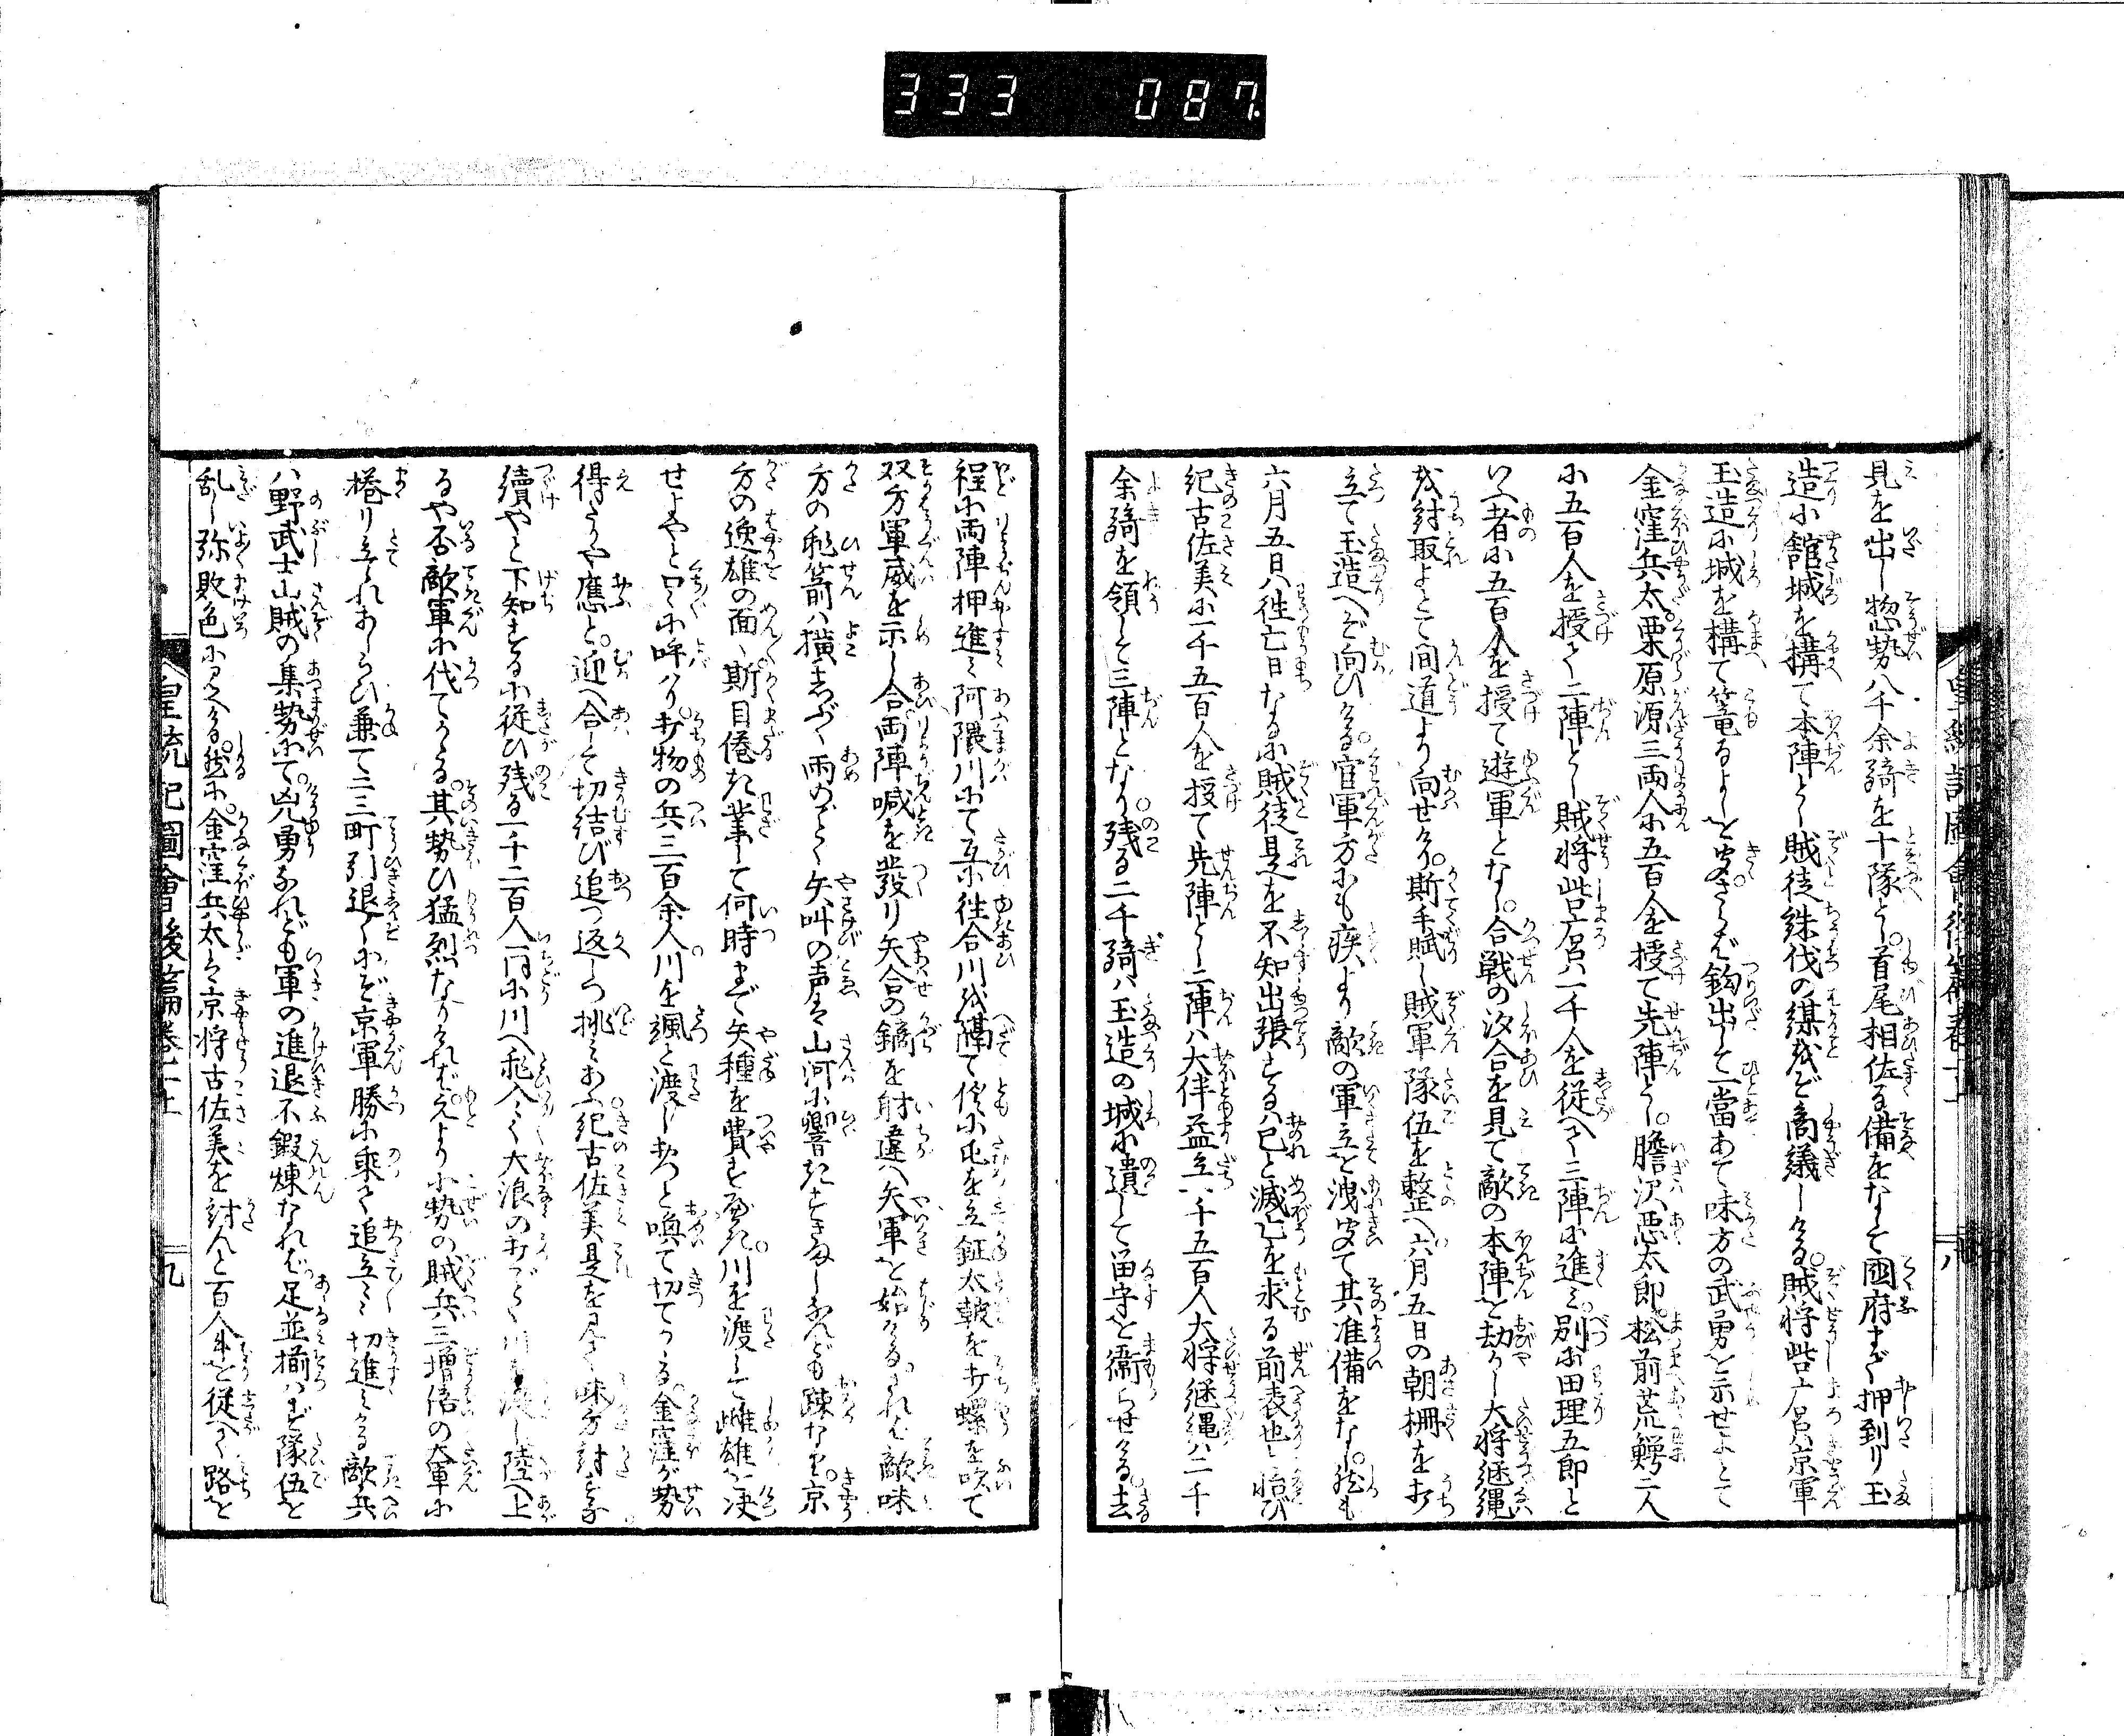 333 087
見を出し惣勢八千余騎を十隊とし首尾相佐る備をなして國府まで押到り玉
造に舘城を構て本陣とし賊徒誅伐の謀をぞ商議しける賊将呰广呂ハ京軍
玉造に城を構て篭るよしを聞さらバ釣出して一當あて味方の武勇を示せよとて
金窪兵太栗原源三両人に五百人を授て先陣とし膽沢悪太郎松前荒鰐二人
に五百人を授て二陣とし賊将呰广呂ハ一千人を従へて三陣に進ミ別に田理五郎と
いふ者に五百人を授て遊軍となし合戦の汐合を見て敵の本陣を劫かし大将継縄
を討取よとて間道より向せけり斯手賦し賊軍隊伍を整へ六月五日の朝柵を打
立て玉造へぞ向ひける官軍方にも疾より敵の軍立を洩聞て其准備をなし然も
六月五日ハ往亡日なるに賊徒是を不知出張するハ己と滅亡を求る前表也と怡び
紀古佐美に一千五百人を授て先陣とし二陣ハ大伴益立一千五百人大将継縄ハ二千
余騎を領して三陣となり残る二千騎ハ玉造の城に遺して留守を衞らせける去
程に両陣押進ミ阿隈川にて互に往合川を隔て俱に屯を立鉦太皷を打螺を吹て
双方軍威を示し合両陣喊を發り矢合の鏑を射違へ矢軍を始けるされバ敵味
方の飛箭ハ横しぶく雨のごとく矢叫の声ハ山河に響きすさまじなんども疎なり京
方の逸雄の面々斯目倦き業して何時まで矢種を費すべき川を渡して雌雄を决
せよやと口々に呼ハり打物の兵三百余人川を颯と渡しおつと喚て切てかゝる金窪が勢
得たりや應と迎へ合して切結び追つ返しつ挑ミあふ紀古佐美是を見て味方討すな
續やと下知するに従ひ残る一千二百人一同に川へ飛入て大浪の打ごとく川を渡し陸へ上
るや否敵軍に伐てかゝる其勢ひ猛烈なりけれバえより小勢の賊兵三増倍の大軍に
捲り立られあしらひ兼て二三町引退くにぞ京軍勝に乗て追立々々切進ミける敵兵
ハ野武士山賊の集勢にて兇勇なれども軍の進退不鍛煉なれバ足並揃ハず隊伍を
乱し弥敗色に見へける然に金窪兵太ハ京将古佐美を討んと百人を従へて路を
皇統記圖會後篇巻之上 九